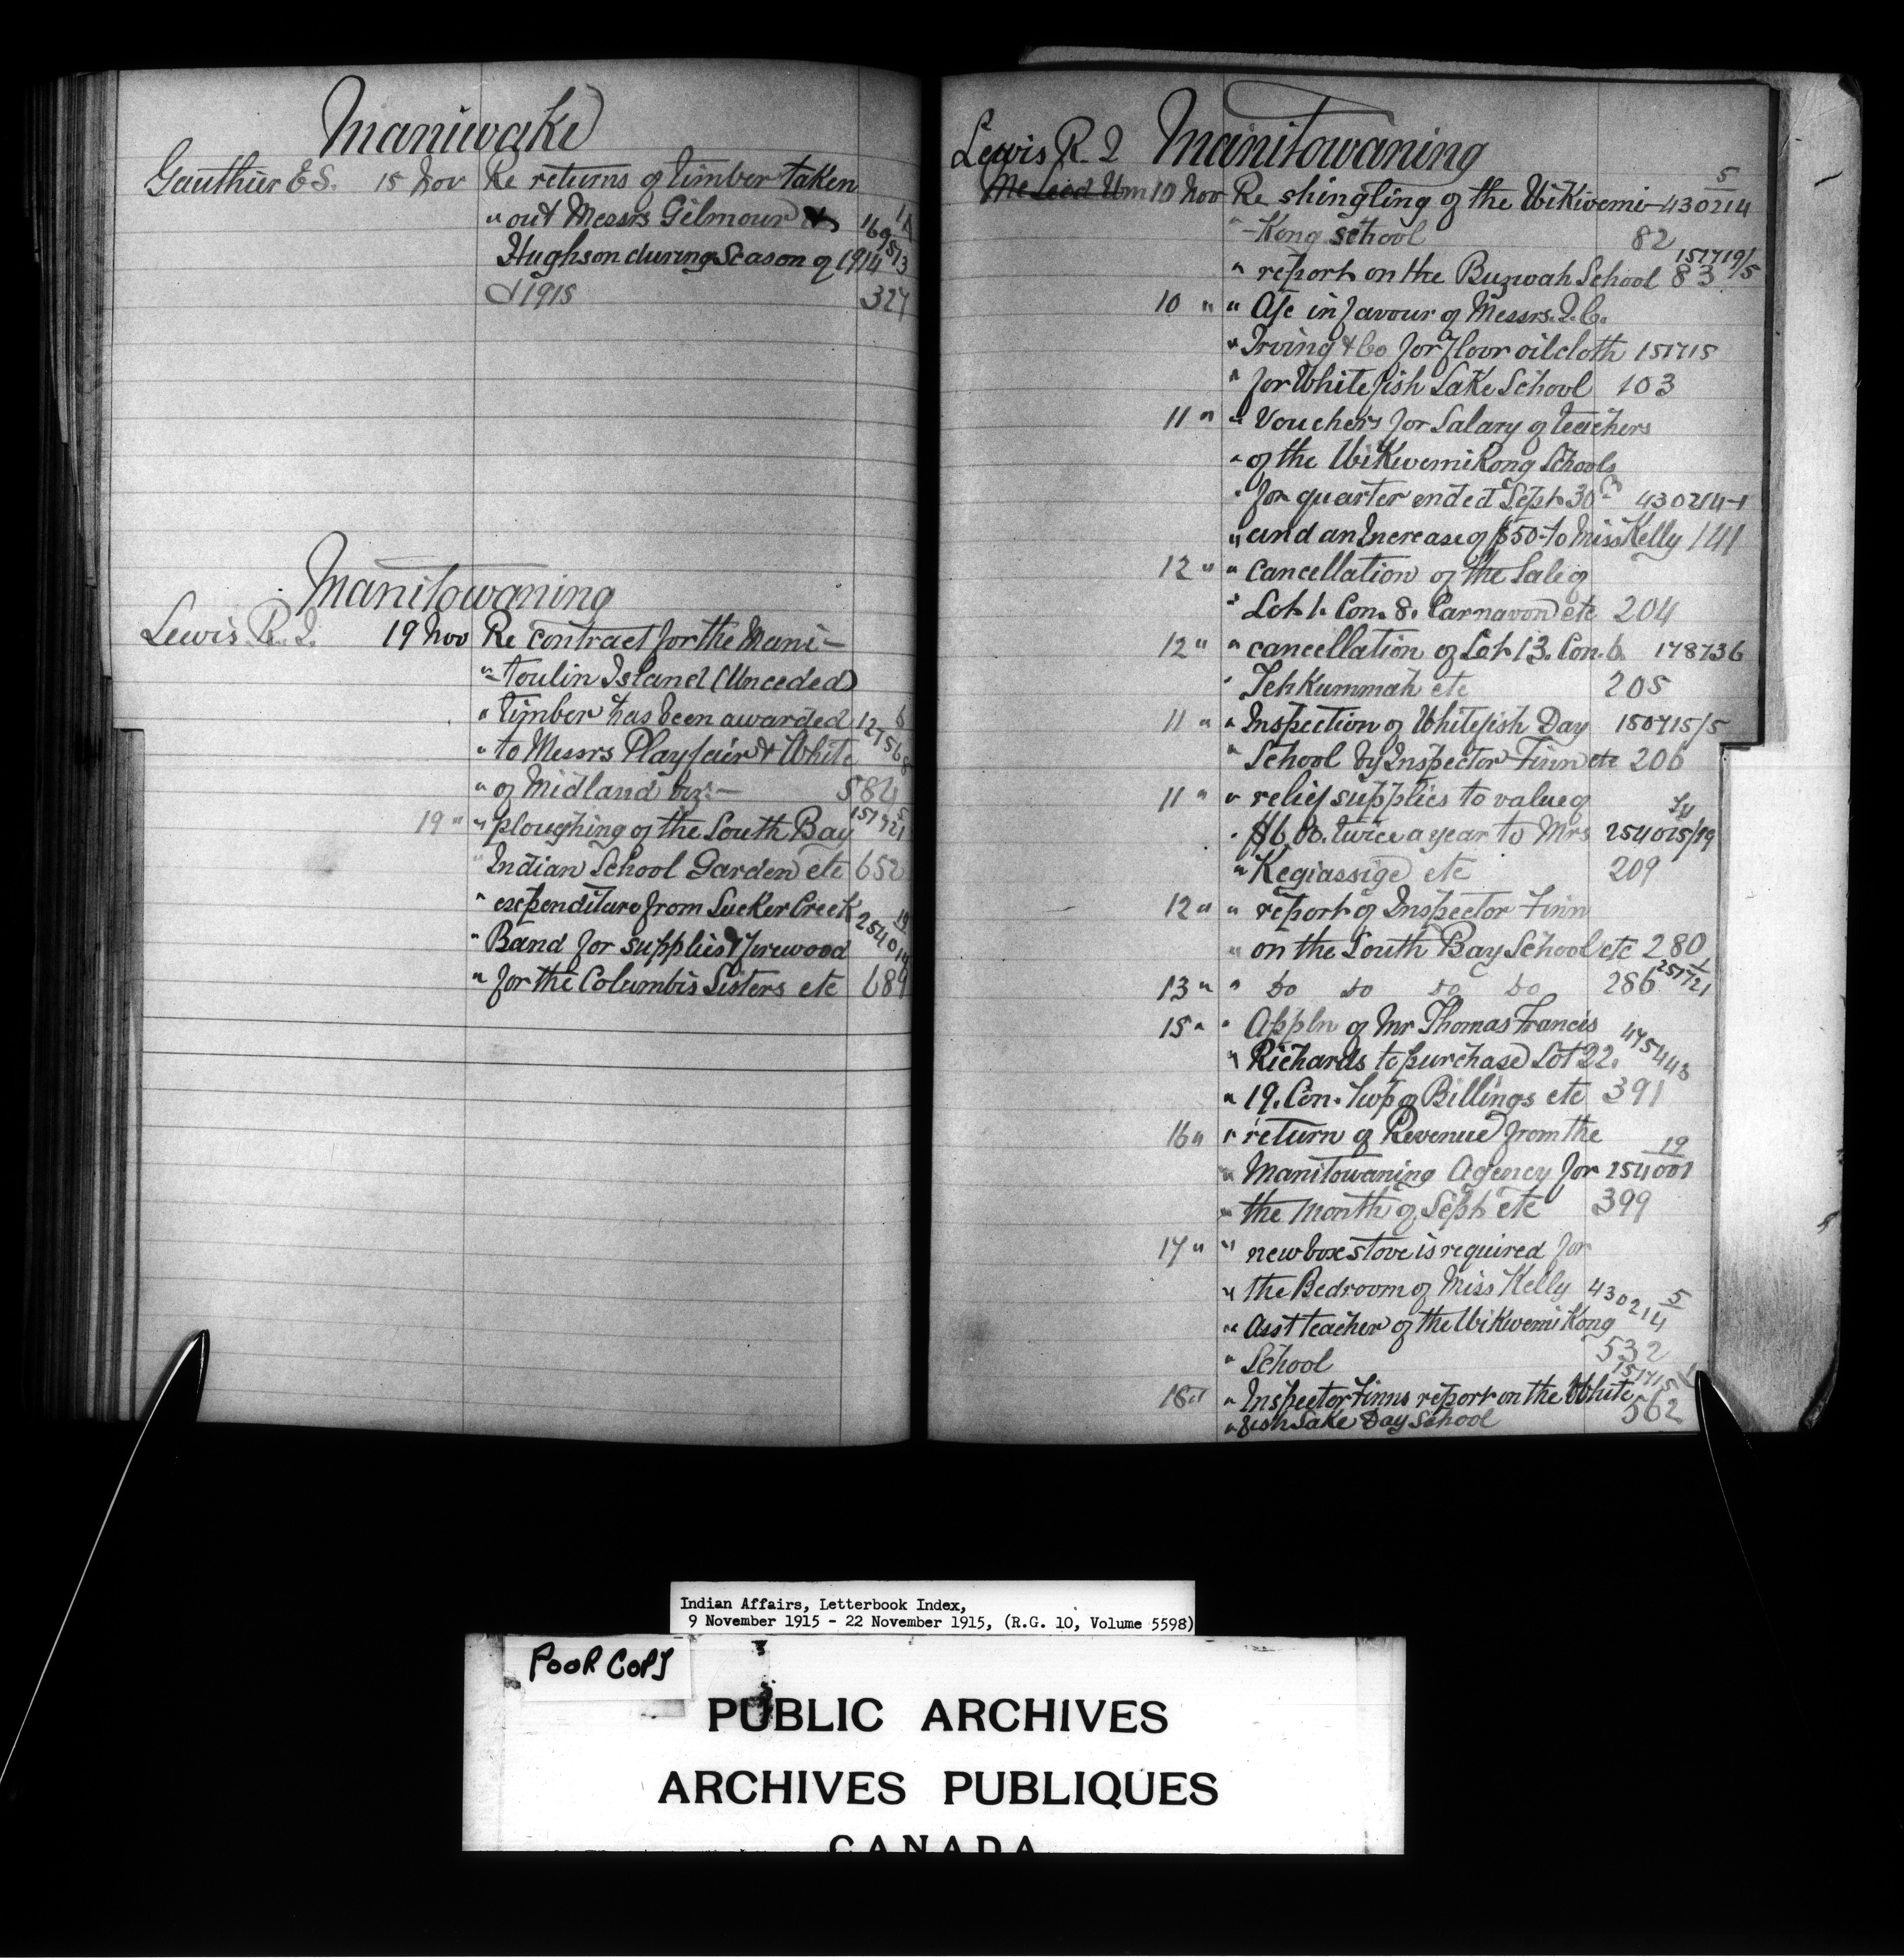 Maniwake
Gauthier E.S. 15 Nov Re returns of timber taken
" out Messrs Gilmour &
Hughson during Season of 1914
& 1915 327
Manitowaning
Lewis R. J. 19 Nov Re contract for the Mani-
"-toulin Island (Unceded)
" timber has been awarded
" to Messrs Playfair & White
" of Midland viz:- 584
19 " " ploughing of the South Bay
" Indian School Garden etc 652
" expenditure from Sucker Creek
" Band for supplies & firewood
" for the Columbis Sisters etc 689
Lewis R. J. Manitowaning
10 Nov Re shingling of the Wikwemi- 430214 5
" -Kong school 82
" report on the Buzwah School 83 151719/5
10 " " A/c in favour of Messrs. J. C.
" Irving & Co for floor oilcloth 151715
" for Whitefish Lake School 103
11 " " Vouchers for Salary of teachers
" of the Wikwemikong Schools
" for quarter ended Sept 30 430214-1
" and an Increase of $50- to Miss Kelly 141
12 " " cancellation of the Sale of
" Lot 1. Con. 8. Carnavon etc 204
12 " " cancellation of Lot 13. Con. 6. 178736
" Tehkummah etc 205
11 " " Inspection of Whitefish Day 150715/5
" School by Inspector Finn etc 206
11 " " relief supplies to value of
" $6.00. twice a year to Mrs
" Kegiassige etc 209
12 " " report of Inspector Finn
" on the South Bay School etc 280
13 " " do do do do 286
15 " " Appln of Mr Thomas Francis
" Richards to purchase Lot 22. 475443
" 19. Con. Twp of Billings etc 391
16 " " return of Revenue from the 19
" Manitowaning Agency for 254001
" the month of Sept etc 399
17 " " new box stove is required for
" the Bedroom of Miss Kelly 430214 5
" Asst teacher of the Wikwemikong
" School 532
18 " " Inspector Finns report on the White 151715
" fish Lake Day School 562
Indian Affairs, Letterbook Index,
9 November 1915 - 22 November 1915, (R.G. 10, Volume 5598)
POOR COPY
PUBLIC ARCHIVES
ARCHIVES PUBLIQUES
CANADA